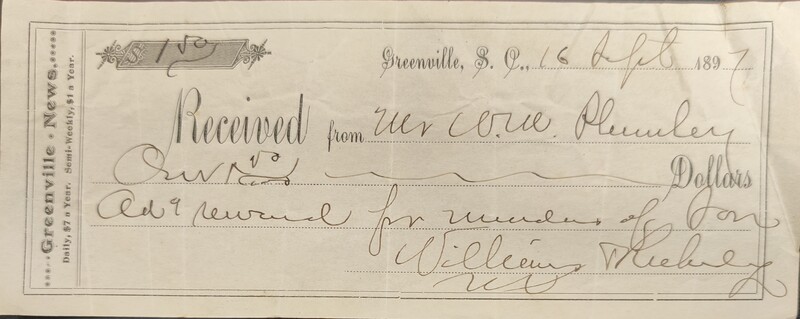 Greenville News.
Daily, $7 a Year. Semi-Weekly, $1 a Year.
$ 1 50
Greenville, S. C., 16 Sept 1897
Received from Mr W. M. Plumley
One & 50 Dollars
Adv reward for murder of Son
William